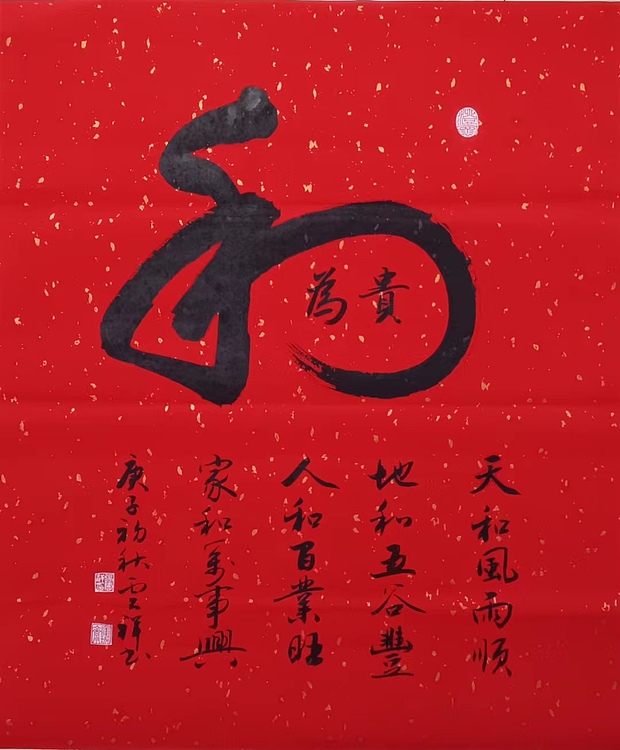 和
為貴
天和風雨順
地和五谷豐
人和百業旺
家和萬事興
庚子初秋雲祥书